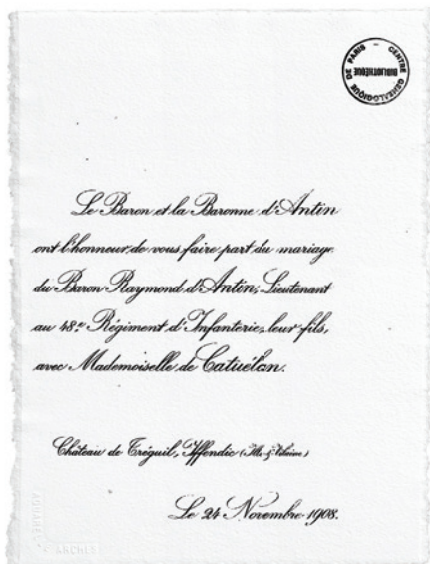 CENTRE GÉNÉALOGIQUE DE PARIS
BIBLIOTHÈQUE
Le Baron et la Baronne d'Antin
ont l'honneur de vous faire part du mariage
du Baron Raymond d'Antin, Lieutenant
au 48e Régiment d'Infanterie, leur fils,
avec Mademoiselle de Catuélan.
Château de Tréguil, Iffendic (Ille-&-Vilaine)
Le 24 Novembre 1908.
ARCHES